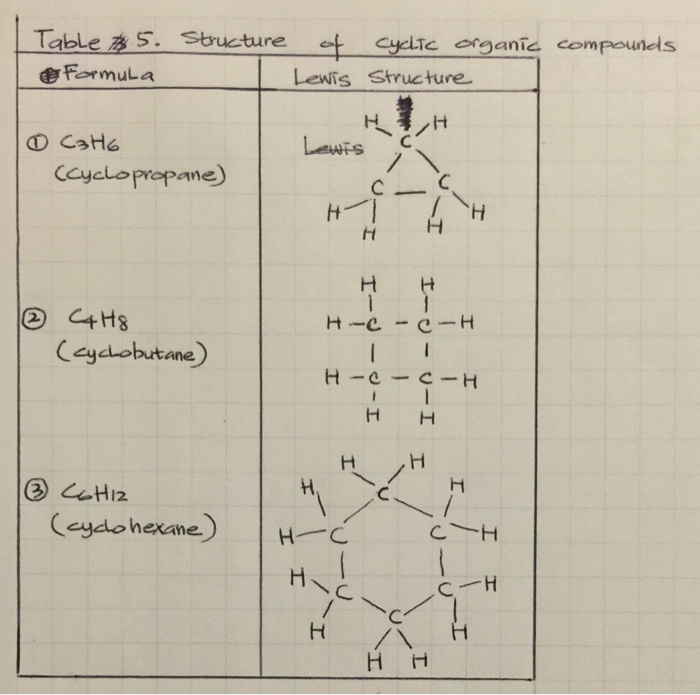 Table 5. Structure of cyclic organic compounds
Formula Lewis Structure
① C3H6
(cyclopropane)
Lewis
H H
C
C C
H H
H H
② C4H8
(cyclobutane)
H H
H - C - C - H
H - C - C - H
H H
③ C6H12
(cyclohexane)
H H
H C H
H C C H
H C C H
H C H
H H